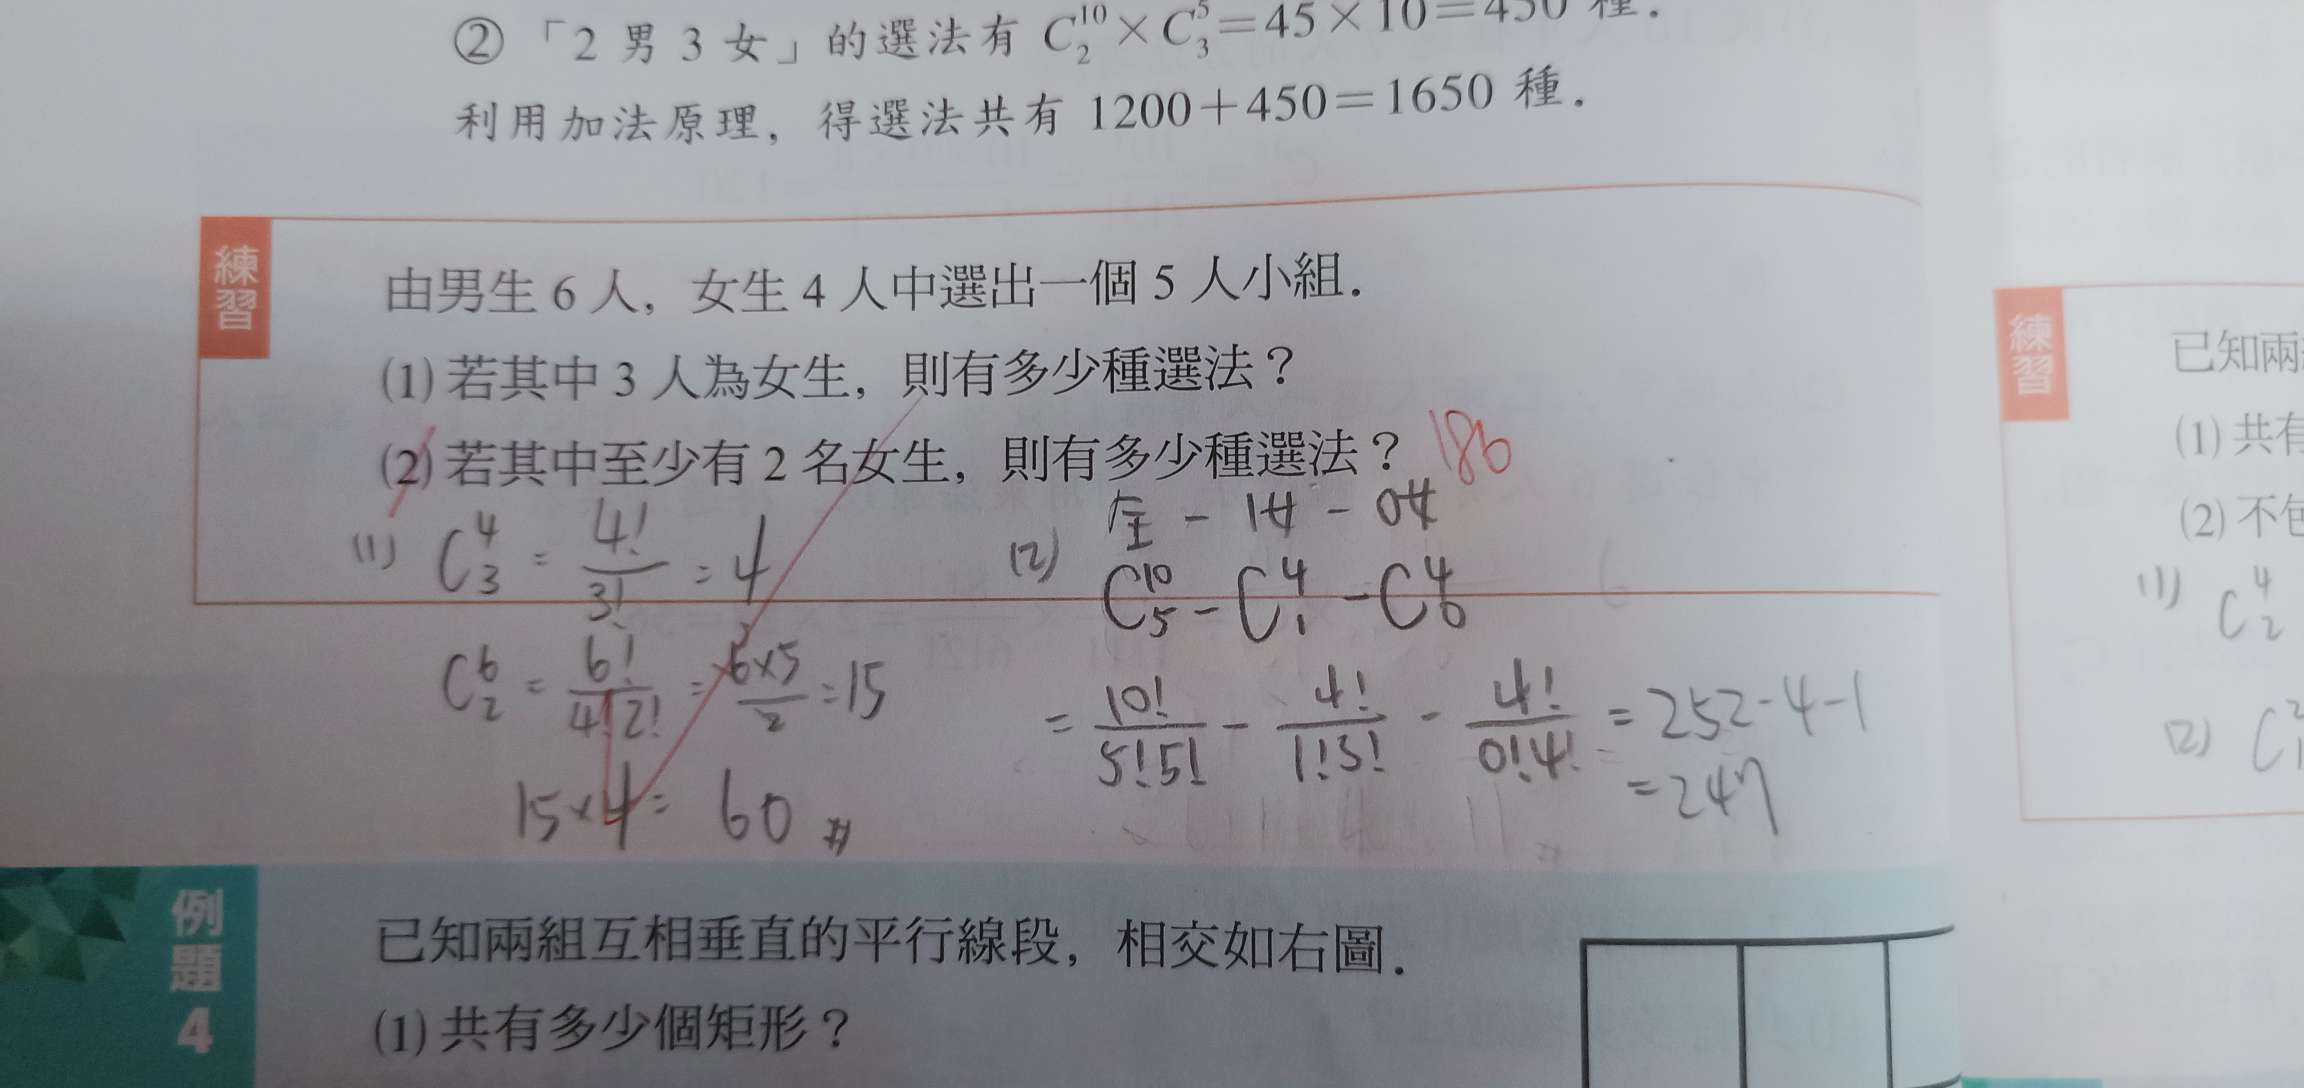 ② 「2 男 3 女」的選法有 C₂¹⁰×C₃⁵=45×10=450 種．
利用加法原理，得選法共有 1200+450=1650 種．
練習
由男生 6 人，女生 4 人中選出一個 5 人小組．
(1) 若其中 3 人為女生，則有多少種選法？
(2) 若其中至少有 2 名女生，則有多少種選法？ 186
(1) C₃⁴ = 4!/3! = 4
C₂⁶ = 6!/4!2! = 6×5/2 = 15
15×4 = 60 #
(2) 全 - 1女 - 0女
C₅¹⁰ - C₁⁴ - C₀⁴
= 10!/5!5! - 4!/1!3! - 4!/0!4! = 252-4-1
= 247
例題 4
已知兩組互相垂直的平行線段，相交如右圖．
(1) 共有多少個矩形？
練習
已知兩
(1) 共有
(2) 不包
(1) C₂⁴
(2)